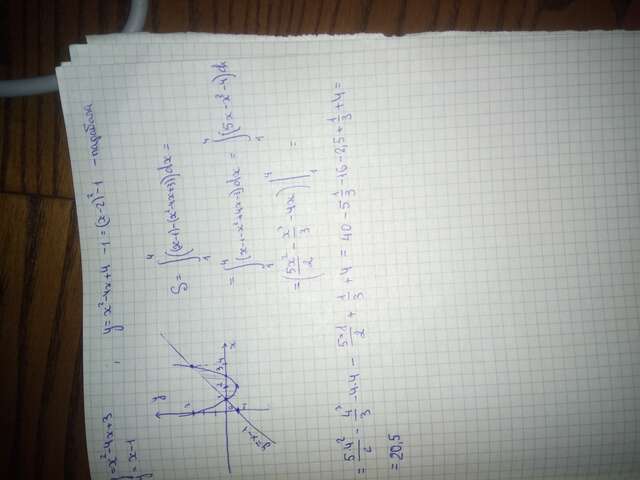 y=x²-4x+3 ; y=x²-4x+4 -1=(x-2)²-1 - парабола
y=x-1
y
x
y=x-1
S=∫₁⁴((x-1)-(x²-4x+3))dx=
=∫₁⁴(x-1-x²+4x-3)dx=∫₁⁴(5x-x²-4)dx
=(5x²/2-x³/3-4x)|₁⁴=
=5·4²/2-4³/3-4·4-5·1/2+1/3+4=40-5 1/3-16-2,5+1/3+4=
=20,5